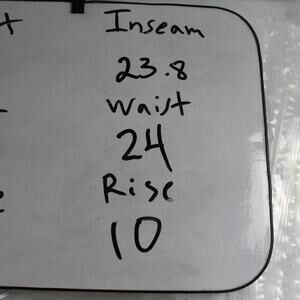 Inseam
23.8
Waist
24
Rise
10